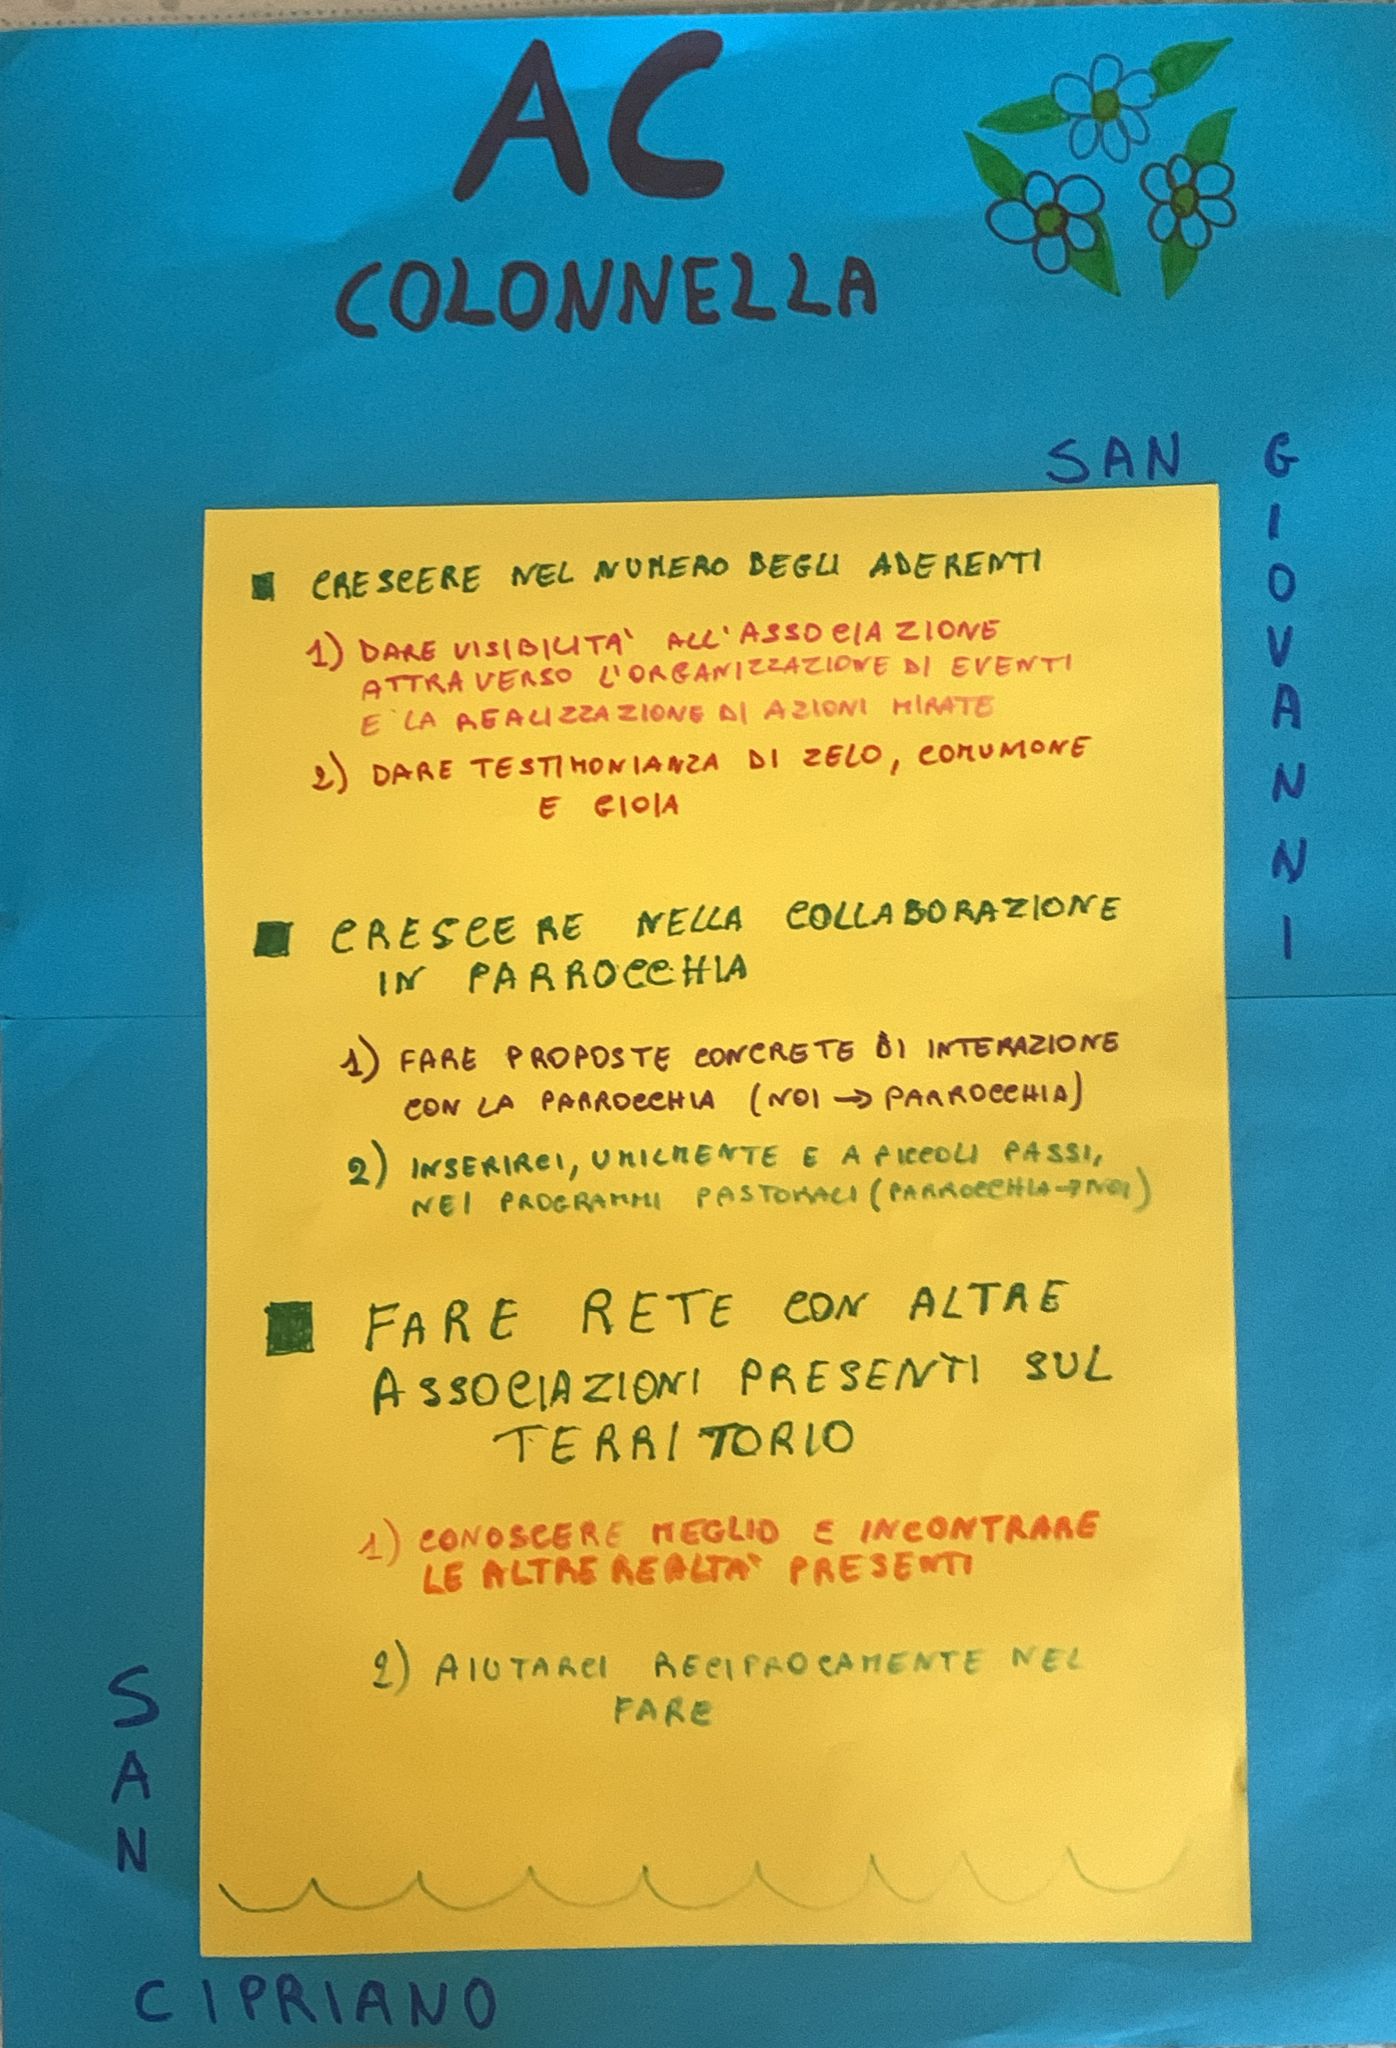 AC
COLONNELLA
SAN
GIOVANNI
■ CRESCERE NEL NUMERO DEGLI ADERENTI
1) DARE VISIBILITA' ALL'ASSOCIAZIONE
ATTRAVERSO L'ORGANIZZAZIONE DI EVENTI
E LA REALIZZAZIONE DI AZIONI MIRATE
2) DARE TESTIMONIANZA DI ZELO, COMUMONE
E GIOIA
■ CRESCERE NELLA COLLABORAZIONE
IN PARROCCHIA
1) FARE PROPOSTE CONCRETE DI INTERAZIONE
CON LA PARROCCHIA (NOI → PARROCCHIA)
2) INSERIRCI, UMILMENTE E A PICCOLI PASSI,
NEI PROGRAMMI PASTORALI (PARROCCHIA → NOI)
■ FARE RETE CON ALTRE
ASSOCIAZIONI PRESENTI SUL
TERRITORIO
1) CONOSCERE MEGLIO E INCONTRARE
LE ALTRE REALTA' PRESENTI
2) AIUTARCI RECIPROCAMENTE NEL
FARE
SAN
CIPRIANO